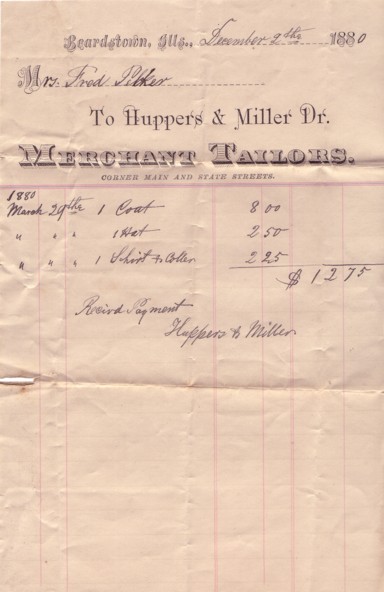 Beardstown, Ills., December 9th 1880
Mrs. Fred Pilker
To Huppers & Miller Dr.
MERCHANT TAILORS.
CORNER MAIN AND STATE STREETS.
1880
March 29th 1 Coat 8 00
" " " 1 Hat 2 50
" " " 1 Shirt & Coller 2 25
$ 12 75
Recivd Payment
Huppers & Miller